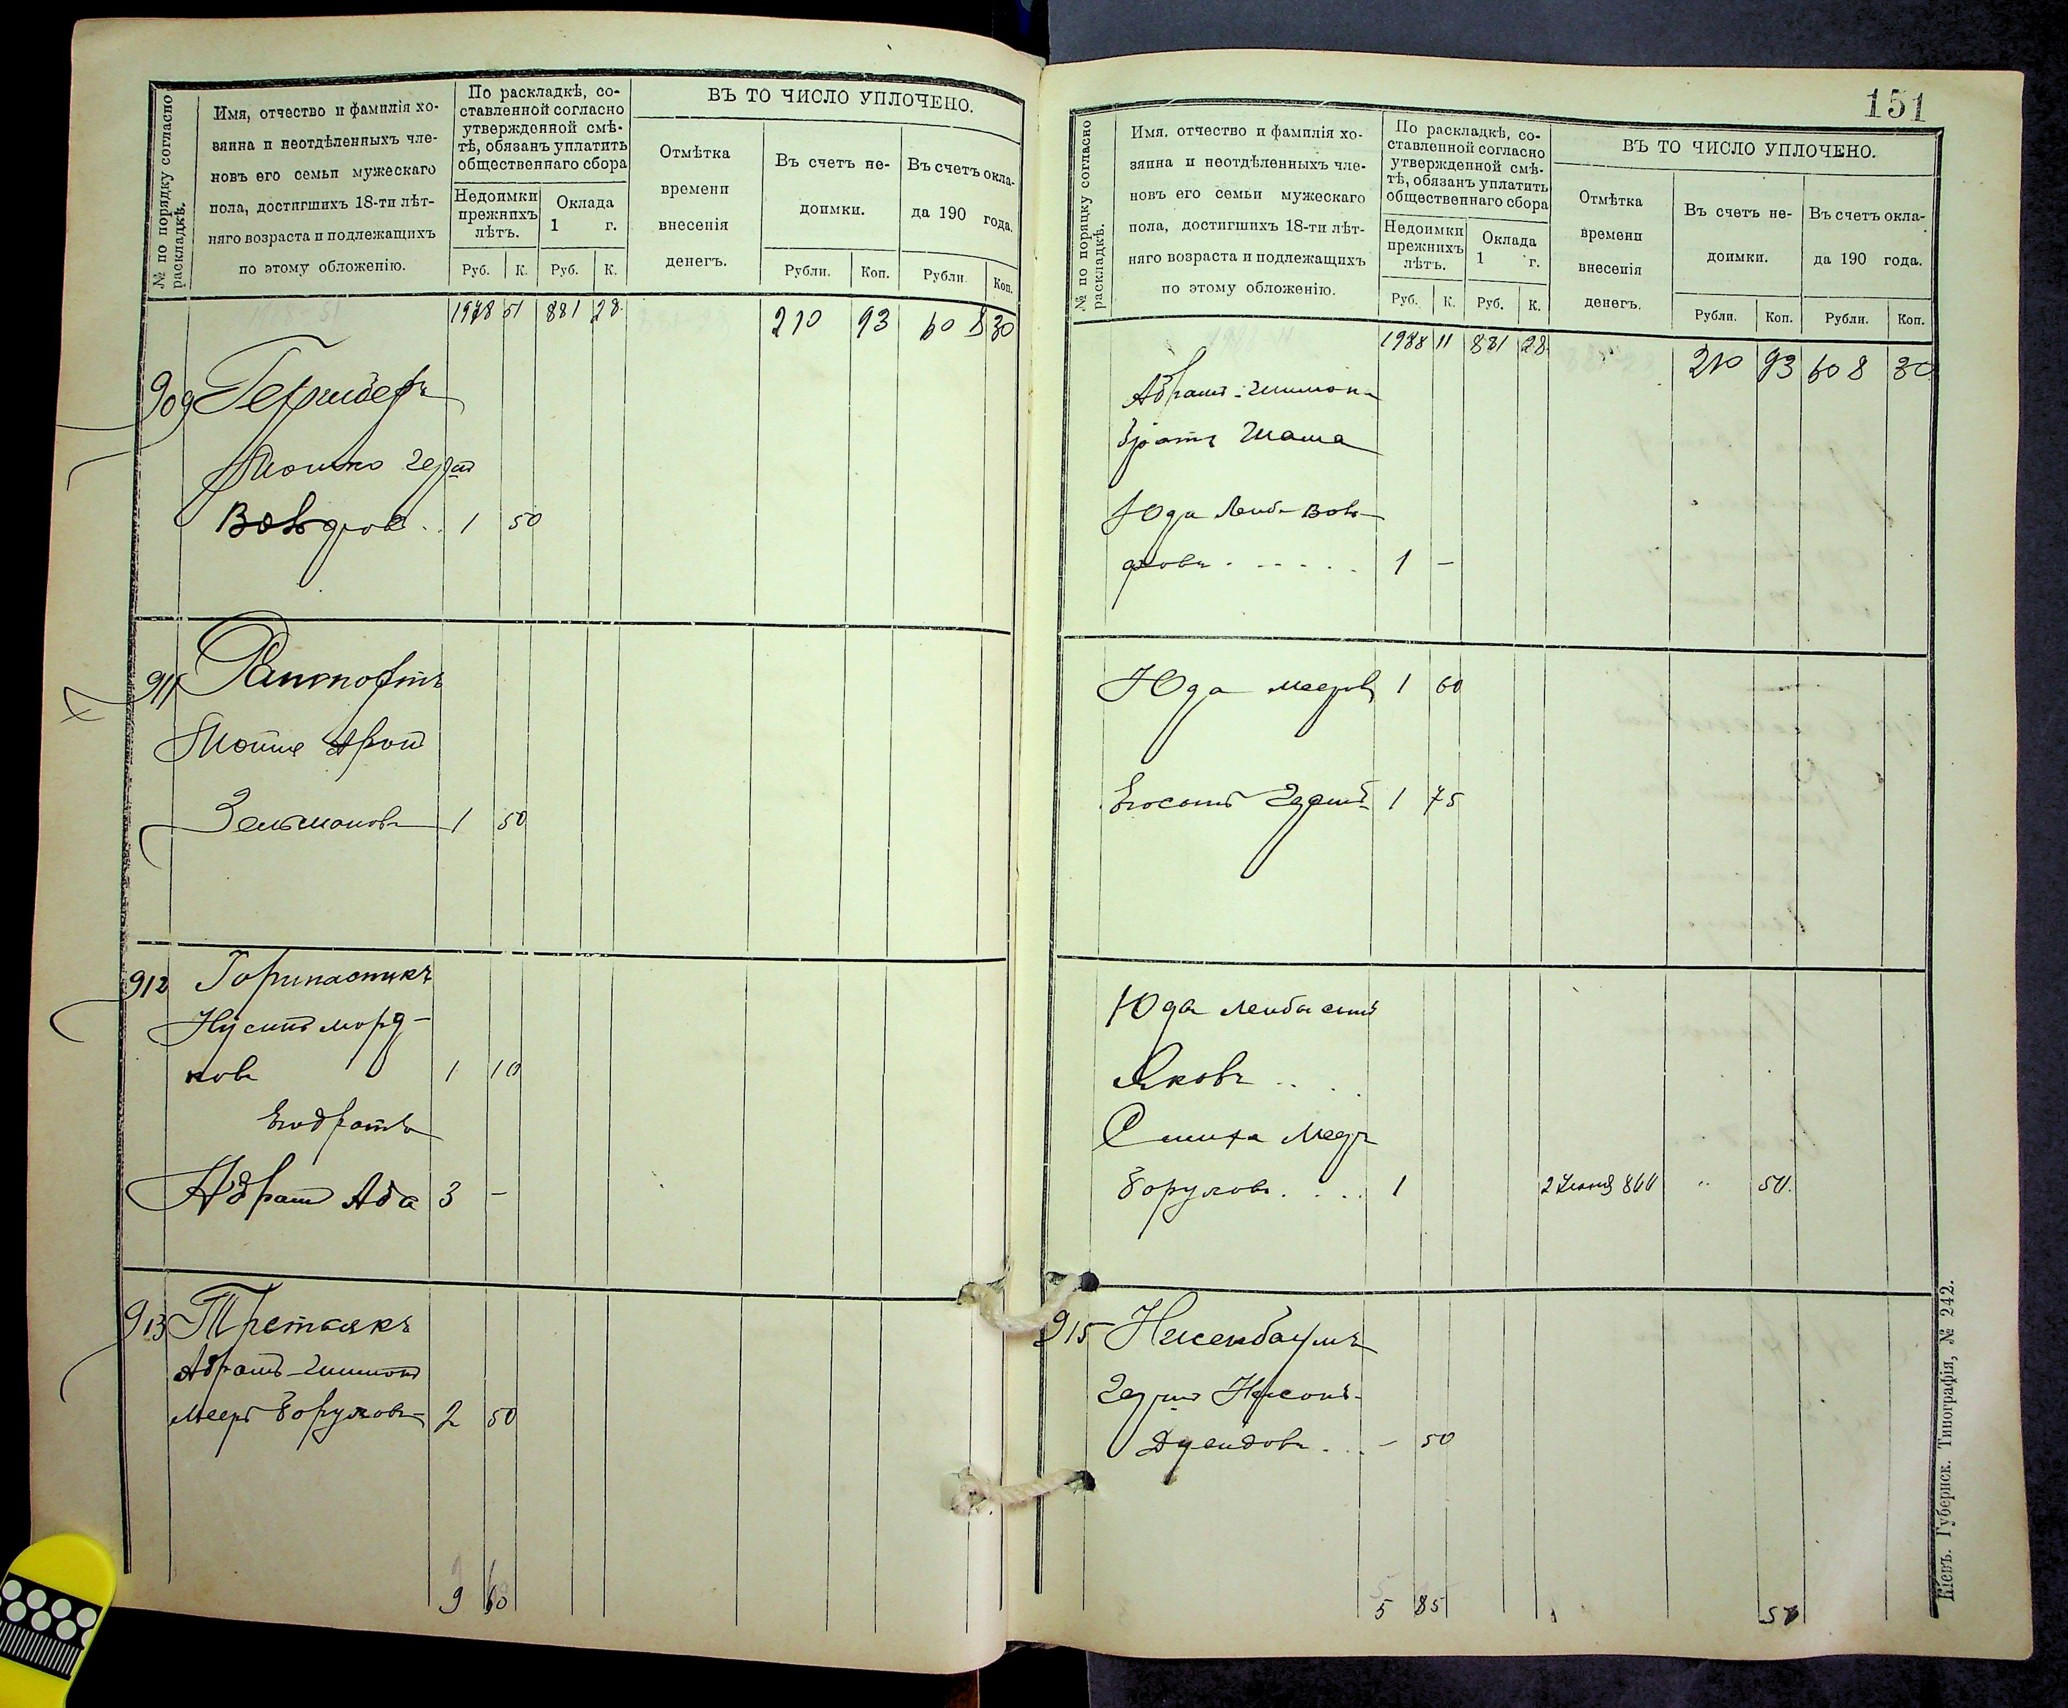 № по порядку согласно раскладкѣ.
Имя, отчество и фамилія хо-
зяина и неотдѣленныхъ чле-
новъ его семьи мужескаго
пола, достигшихъ 18-ти лѣт-
няго возраста и подлежащихъ
по этому обложенію.
По раскладкѣ, со-
ставленной согласно
утвержденной смѣ-
тѣ, обязанъ уплатить
общественнаго сбора
Недоимки
прежнихъ
лѣтъ.
Оклада
1 г.
Руб. К. Руб. К.
ВЪ ТО ЧИСЛО УПЛОЧЕНО.
Отмѣтка
времени
внесенія
денегъ.
Въ счетъ не-
доимки.
Въ счетъ окла-
да 190 года.
Рубли. Коп. Рубли. Коп.
1978 51 881 28 210 93 608 30
909
Мошко
1 50
911 Рапопортъ
Зельмановъ 1 50
912 Горипастикъ
Нусинъ Морд-
ковъ 1 10
Его братъ
Абрамъ Аба 3 -
913 Третьякъ
Абрамъ-Шимонъ
Мееръ Боруховъ 2 50
9 60
151
№ по порядку согласно раскладкѣ.
Имя, отчество и фамилія хо-
зяина и неотдѣленныхъ чле-
новъ его семьи мужескаго
пола, достигшихъ 18-ти лѣт-
няго возраста и подлежащихъ
по этому обложенію.
По раскладкѣ, со-
ставленной согласно
утвержденной смѣ-
тѣ, обязанъ уплатить
общественнаго сбора
Недоимки
прежнихъ
лѣтъ.
Оклада
1 г.
Руб. К. Руб. К.
ВЪ ТО ЧИСЛО УПЛОЧЕНО.
Отмѣтка
времени
внесенія
денегъ.
Въ счетъ не-
доимки.
Въ счетъ окла-
да 190 года.
Рубли. Коп. Рубли. Коп.
1988 11 881 28 210 93 608 30
Абрамъ-Шимонъ
братъ
Юда Лейб
1 -
Юда Мееровъ 1 60
Его сынъ 1 75
Юда Лейба сынъ
Яковъ ..
Симха Меер
Боруховъ.... 1 2 50.
915 Нисенбаумъ
... - 50
5 85 50
Кіевъ. Губернск. Типографія, № 242.